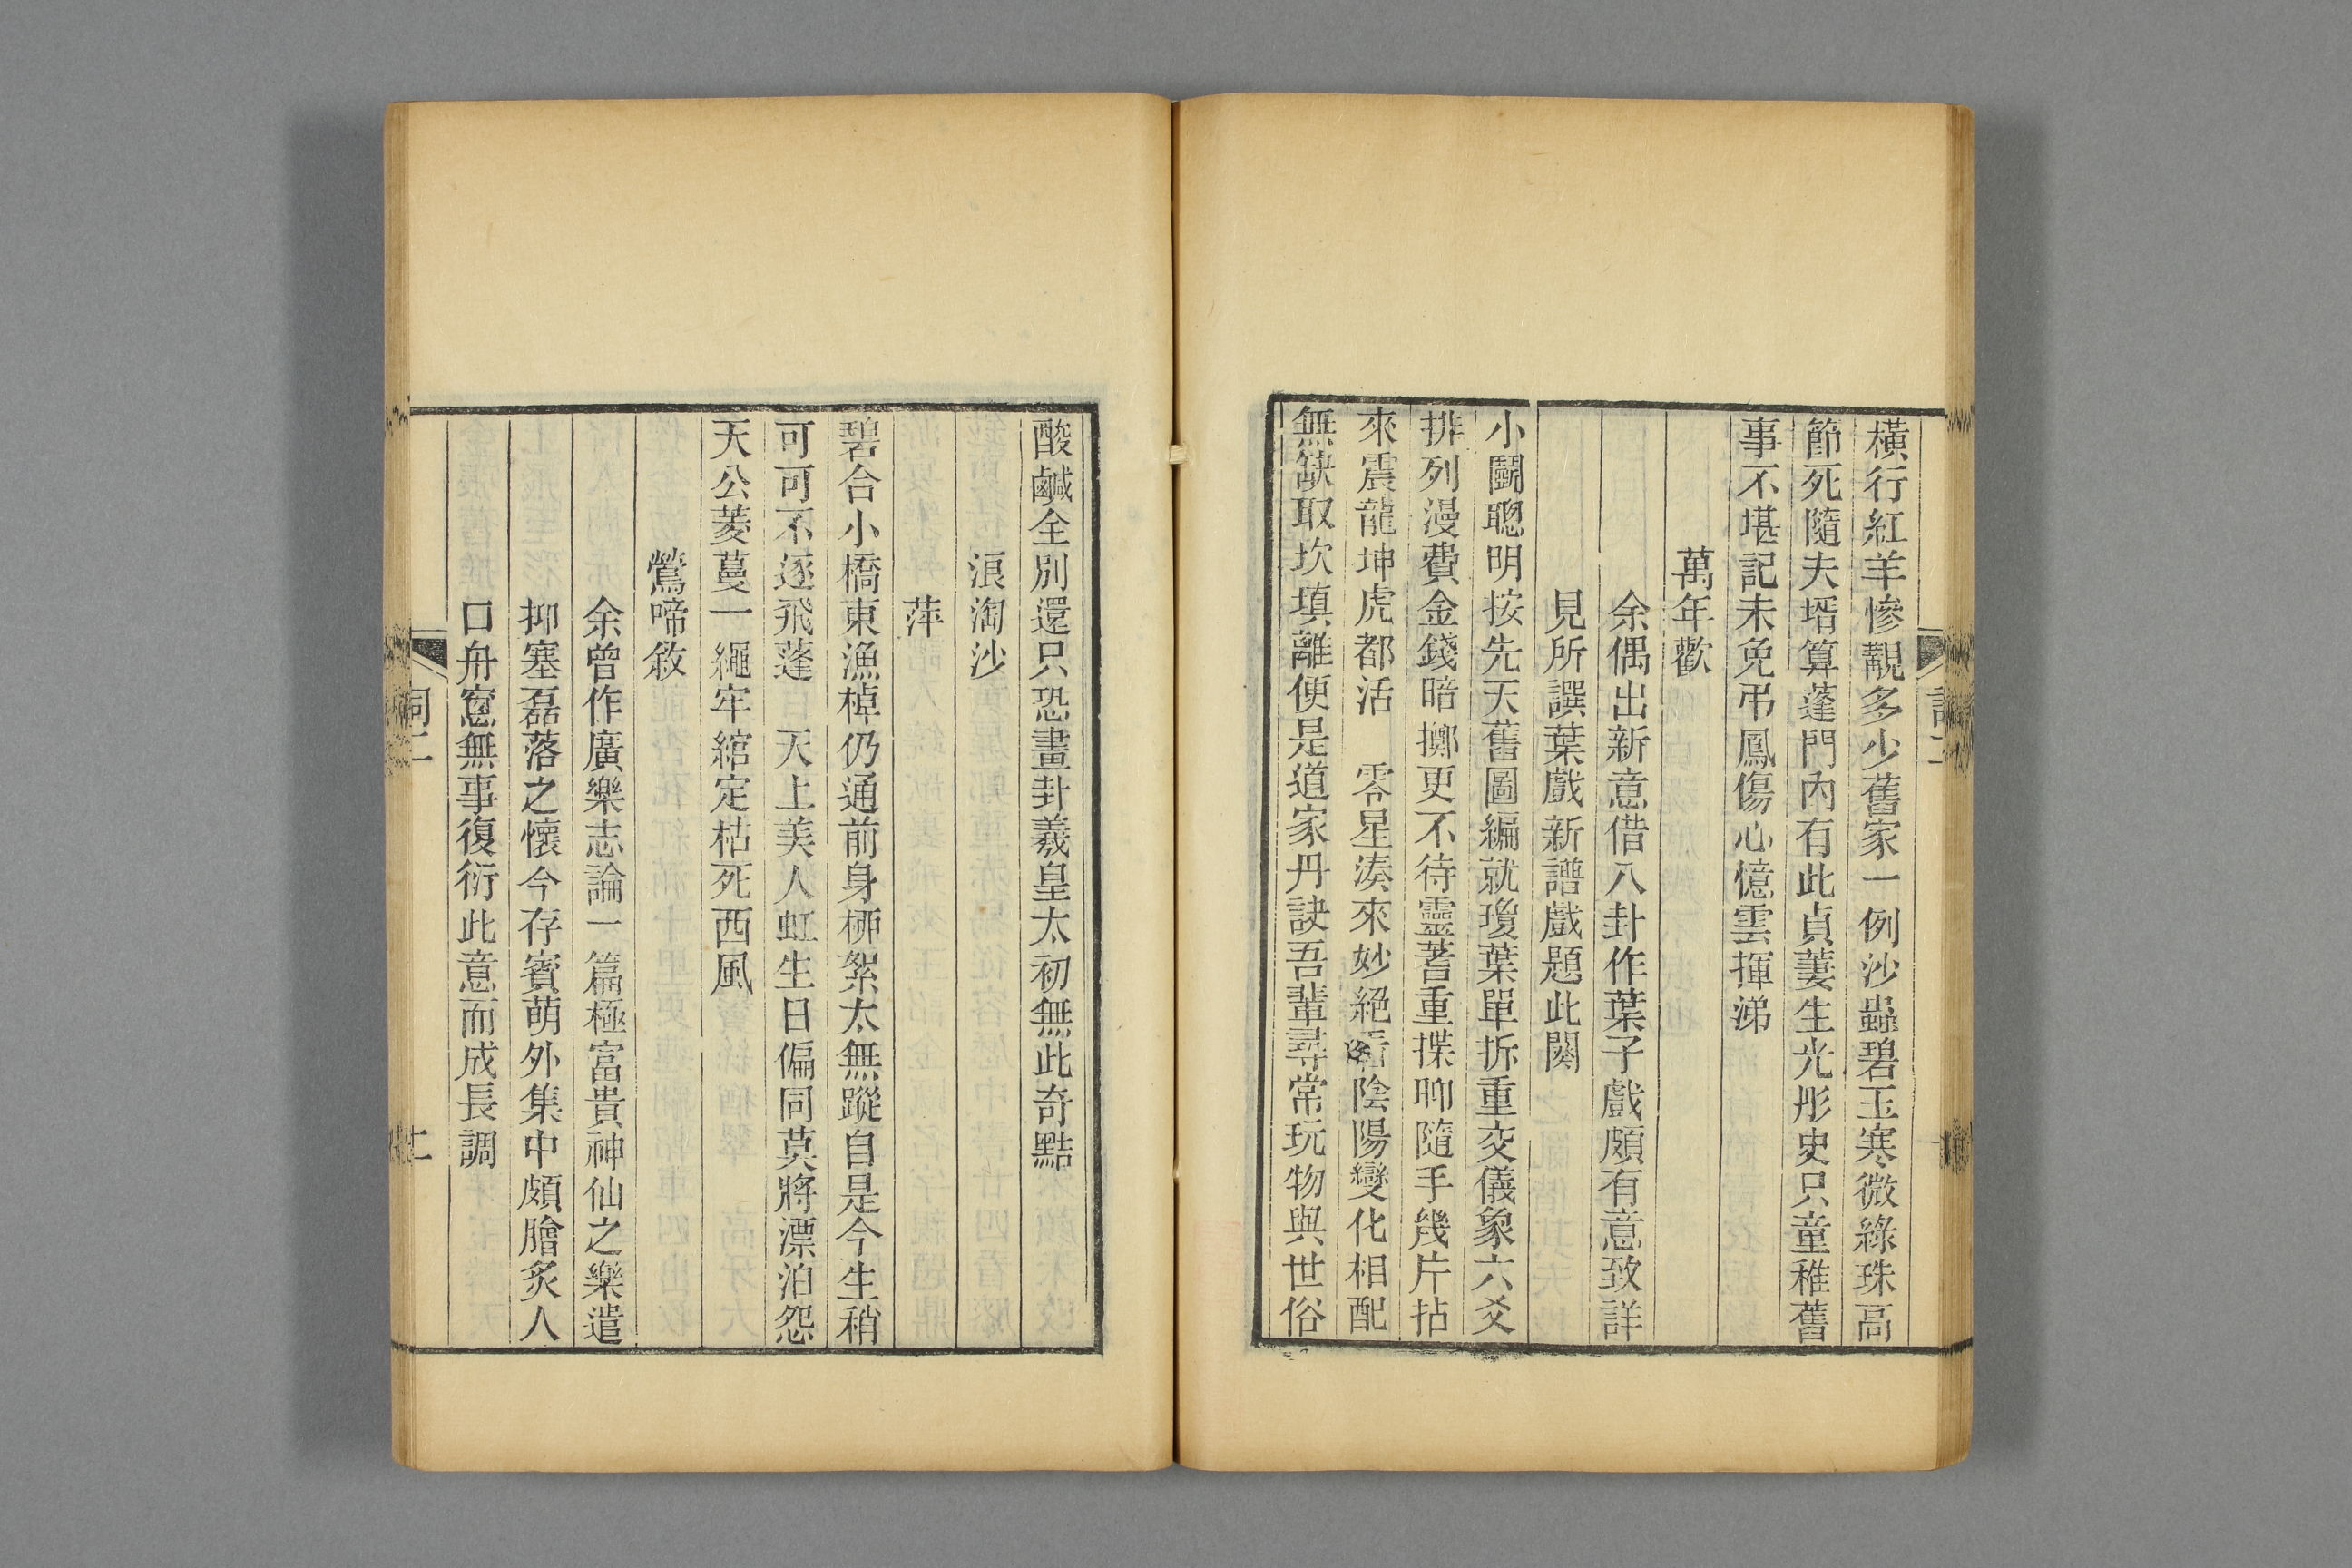 橫行紅羊慘覩多少舊家一例沙蟲碧玉寒微綠珠高
節死隨夫壻算蓬門內有此貞萋生光彤史只童稚舊
事不堪記未免弔鳳傷心憶雲揮涕
萬年歡
余偶出新意借八卦作葉子戲頗有意致詳
見所譔葉戲新譜戲題此闋
小鬭聰明按先天舊圖編就瓊葉單拆重交儀象六爻
排列漫費金錢暗擲更不待靈蓍重揲聊隨手幾片拈
來震龍坤虎都活　零星湊來妙絕看陰陽變化相配
無缺取坎填離便是道家丹訣吾輩尋常玩物與世俗
酸鹹全別還只恐畫卦羲皇太初無此奇黠
浪淘沙
萍
碧合小橋東漁棹仍通前身桺絮太無蹤自是今生稍
可可不逐飛蓬　天上美人虹生日偏同莫將漂泊怨
天公菱蔓一繩牢綰定枯死西風
鶯啼敘
余曾作廣樂志論一篇極富貴神仙之樂遣
抑塞磊落之懷今存賓萌外集中頗膾炙人
口舟窻無事復衍此意而成長調
詞二
二